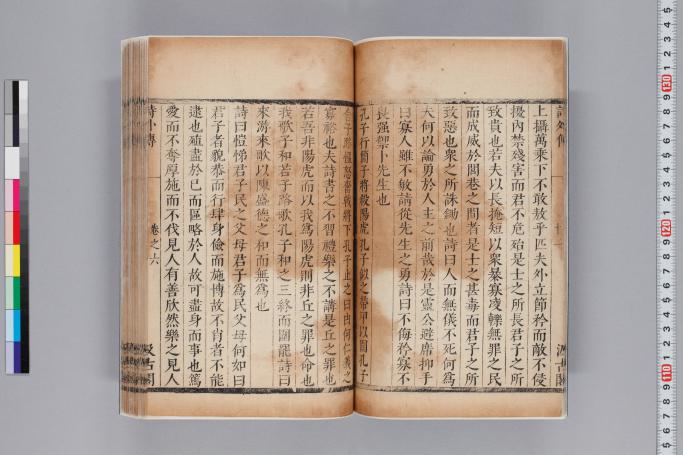 上攝萬乘下不敢敖乎匹夫外立節矜而敵不侵
擾內禁殘害而君不危殆是士之所長君子之所
致貴也若夫以長掩短以衆暴寡凌轢無罪之民
而成威於閭巷之間者是士之甚毒而君子之所
致惡也衆之所誅鋤也詩曰人而無儀不死何爲
夫何以論勇於人主之前哉於是靈公避席抑手
曰寡人雖不敏請從先生之勇詩曰不侮矜寡不
畏强禦卜先生也
孔子行簡子將殺陽虎孔子似之帶甲以圍孔子
舍子路愠怒奮戟將下孔子止之曰由何仁義之
寡裕也夫詩書之不習禮樂之不講是丘之罪也
若吾非陽虎而以我爲陽虎則非丘之罪也命也
我歌子和若子路歌孔子和之三終而圍罷詩曰
來游來歌以陳盛德之和而無爲也
詩曰愷悌君子民之父母君子爲民父母何如曰
君子者貌恭而行肆身儉而施博故不肖者不能
逮也殖盡於已而區略於人故可盡身而事也篤
愛而不奪厚施而不伐見人有善欣然樂之見人
詩外傳
卷之六
汲古閣